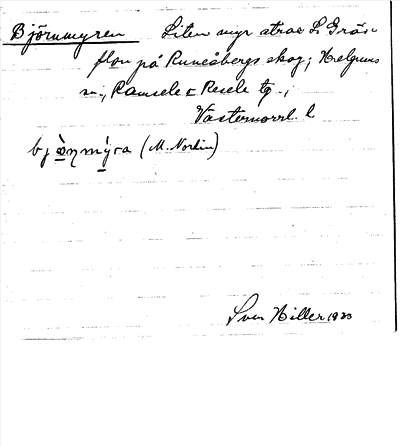 Björnmyren Liten myr strax S. Gräs-
flon på Runsåbergs skog; Helgums
sn., Ramsele & Resele tg.,
Västernorrl. l.
(M. Nordin)
Sven Hiller 1923